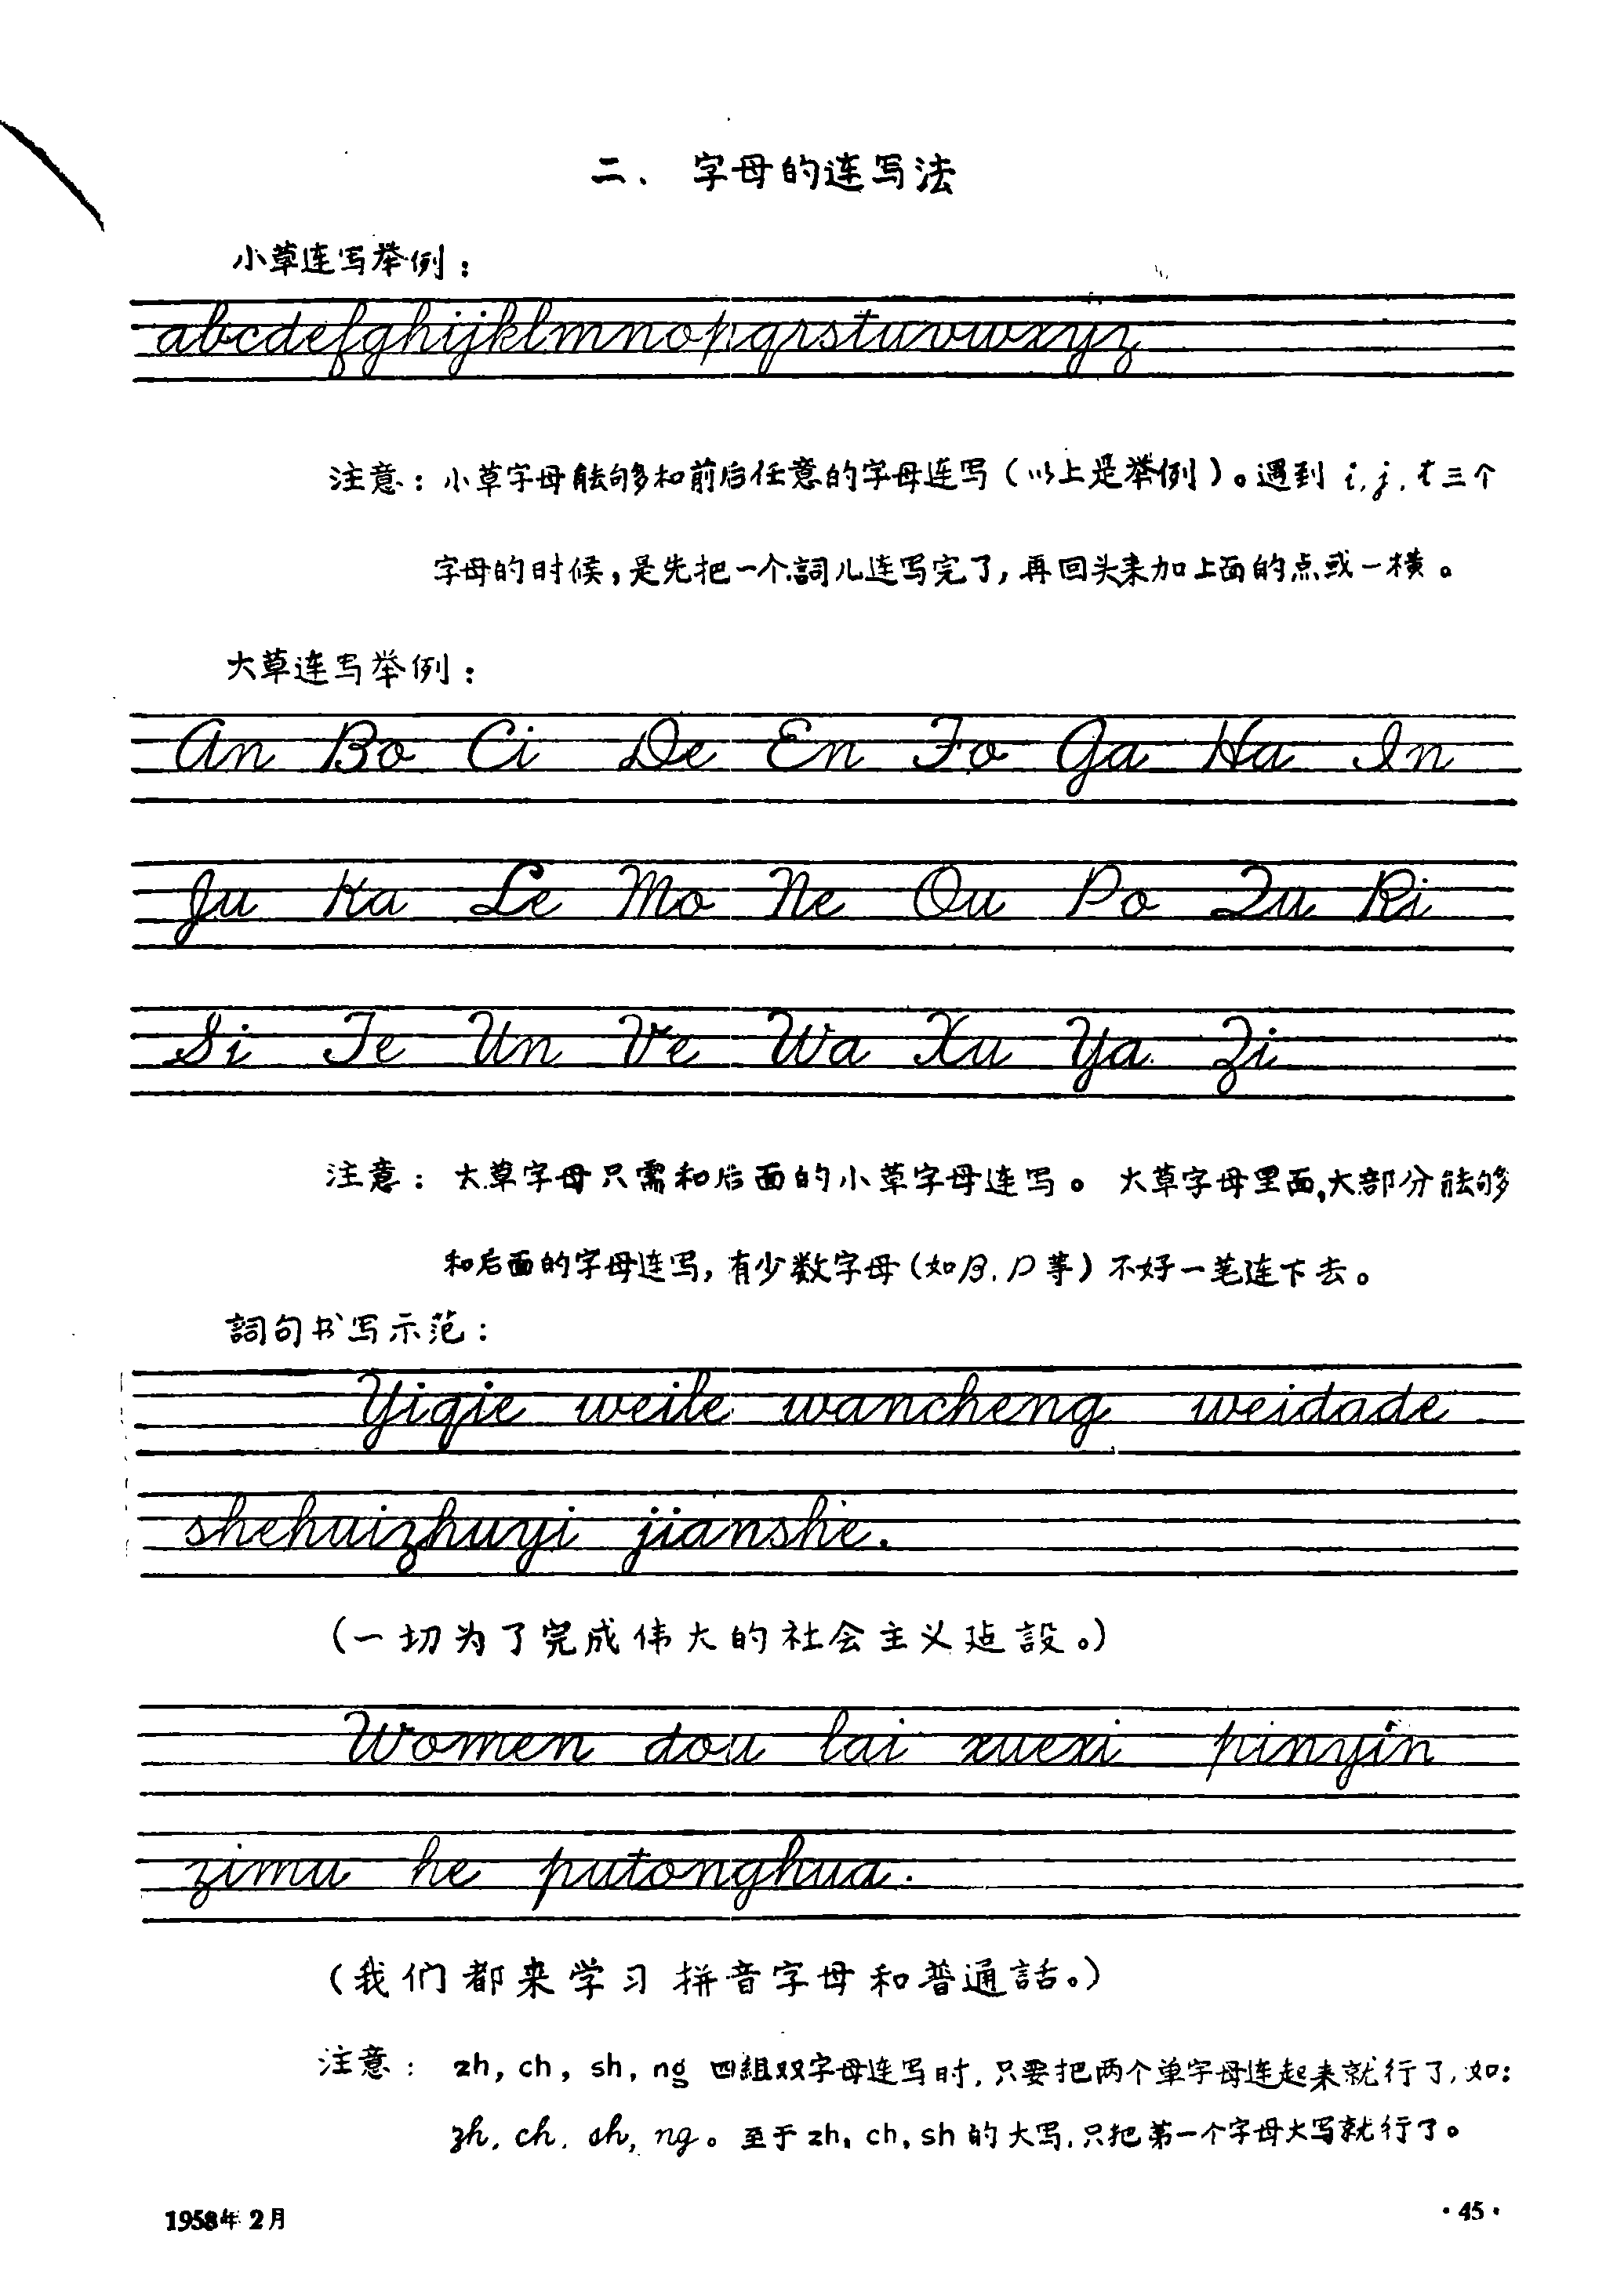 二、字母的连写法
小草连写举例：
abcdefghijklmnopqrstuvwxyz
注意：小草字母能够和前后任意的字母连写（以上是举例）。遇到 i, j, t 三个
字母的时候，是先把一个詞儿连写完了，再回头来加上面的点或一横。
大草连写举例：
An Bo Ci De En Fo Ga Ha In
Ju Ka Le Mo Ne Ou Po Qu Ri
Si Te Un Ve Wa Xu Ya Zi
注意：大草字母只需和后面的小草字母连写。大草字母里面,大部分能够
和后面的字母连写，有少数字母（如B, D等）不好一笔连下去。
詞句书写示范：
Yiqie weile wancheng weidade
shehuizhuyi jianshe.
（一切为了完成伟大的社会主义建設。）
Women dou lai xuexi pinyin
zimu he putonghua.
（我们都来学习拼音字母和普通話。）
注意： zh, ch, sh, ng 四組双字母连写时, 只要把两个单字母连起来就行了, 如：
zh, ch, sh, ng。至于 zh, ch, sh 的大写, 只把第一个字母大写就行了。
1958年2月
·45·